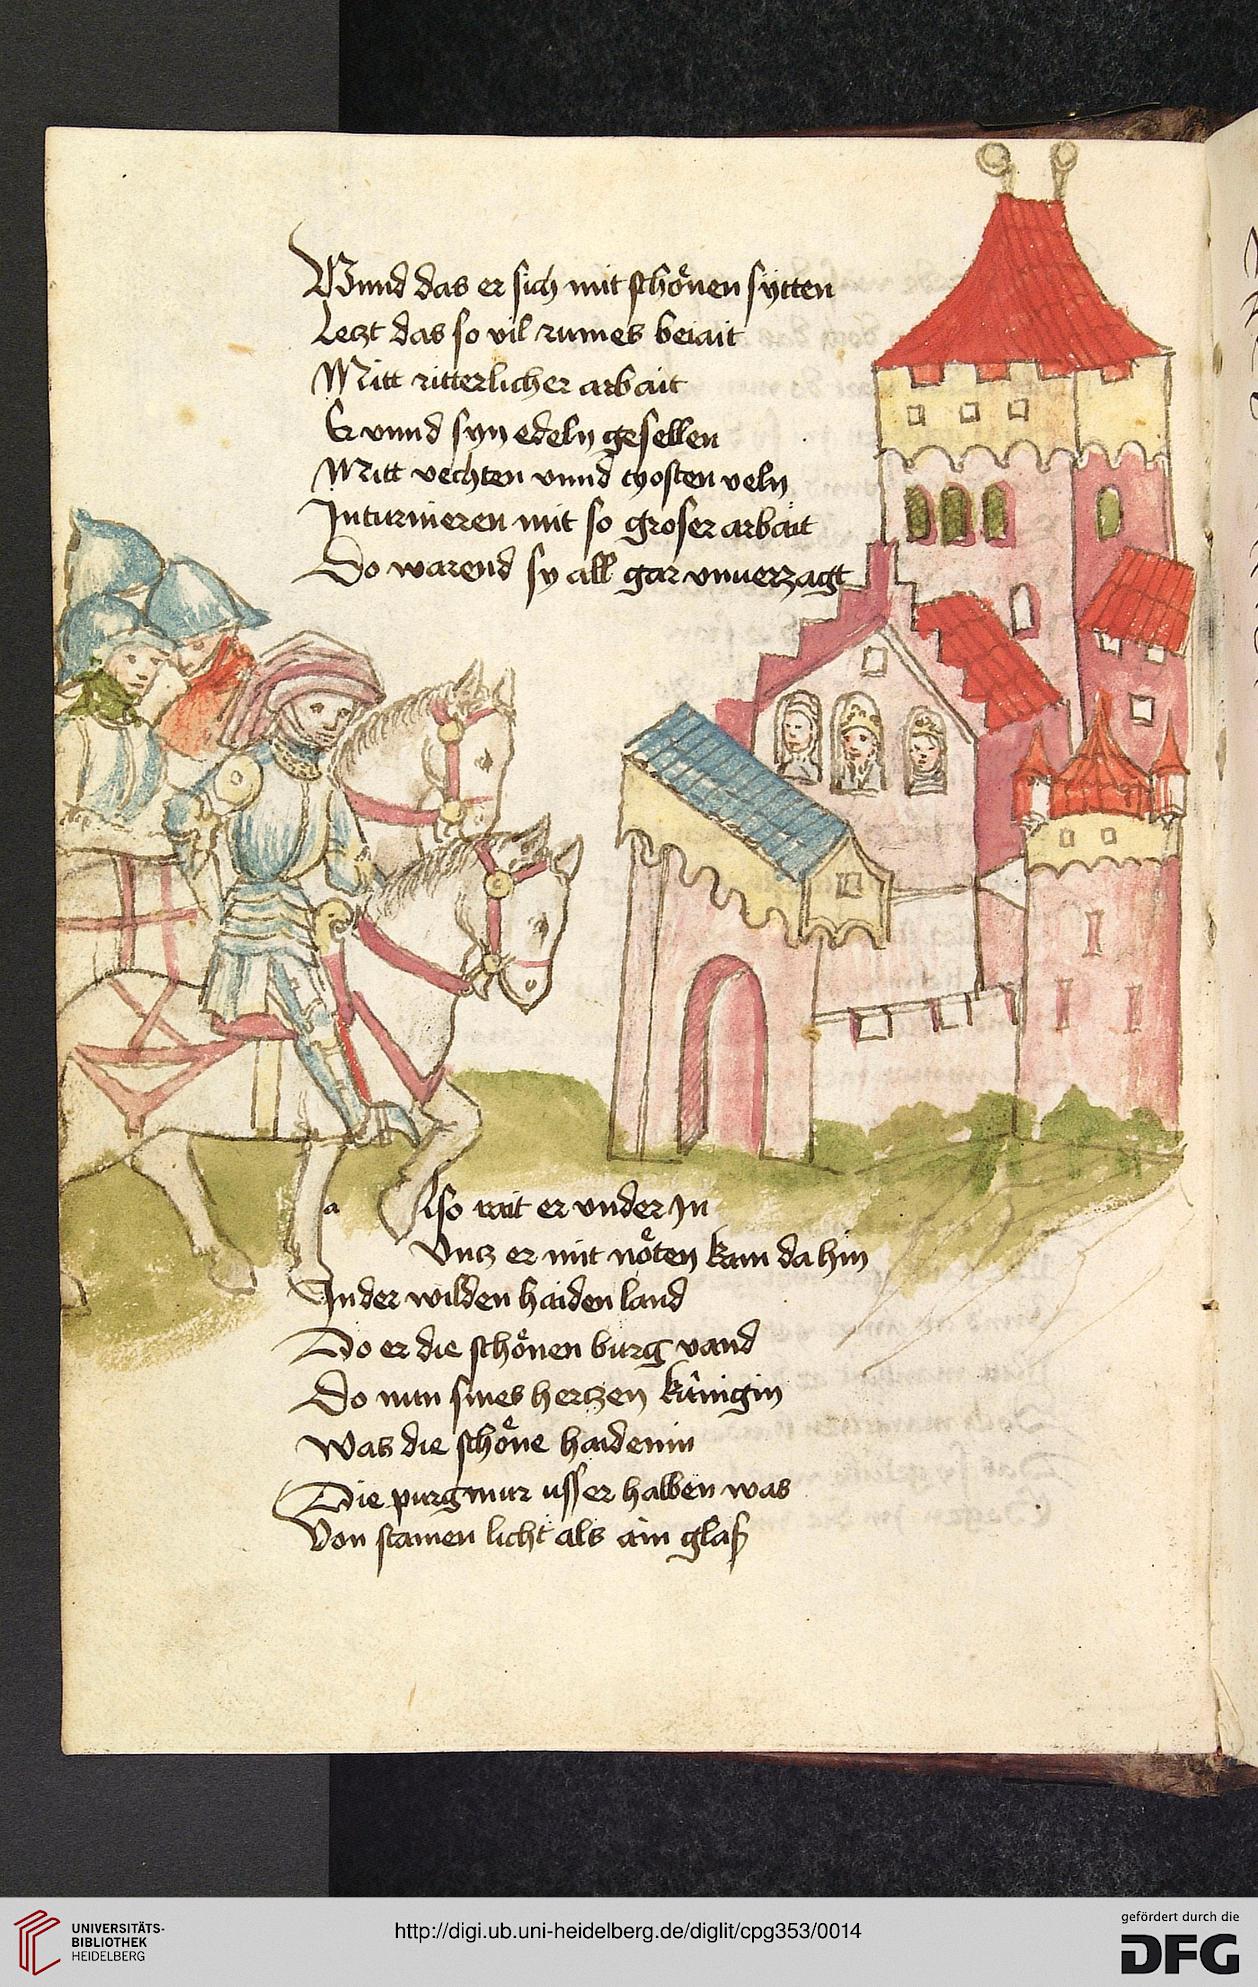 Wnnd das er sich mit schoͤnen sytten
Letzt das so vil rumes beiait
Mitt ritterlicher arbait
Er vnnd syn edeln gesellen
Mitt vechten vnnd tyosten veln
In turnieren mit so groser arbait
Do warend sy all gar vnuerzagt
a Also rait er vnder In
Vntz er mit noͤten kam da hin
In der wilden haiden land
Do er die schoͤnen burg vand
Do nun sines hertzen kúnigin
Was die schoͤne haidenin
Die purgmur usser halben was
Von stainen licht als ain glaß
UNIVERSITÄTS-
BIBLIOTHEK
HEIDELBERG
http://digi.ub.uni-heidelberg.de/diglit/cpg353/0014
gefördert durch die
DFG